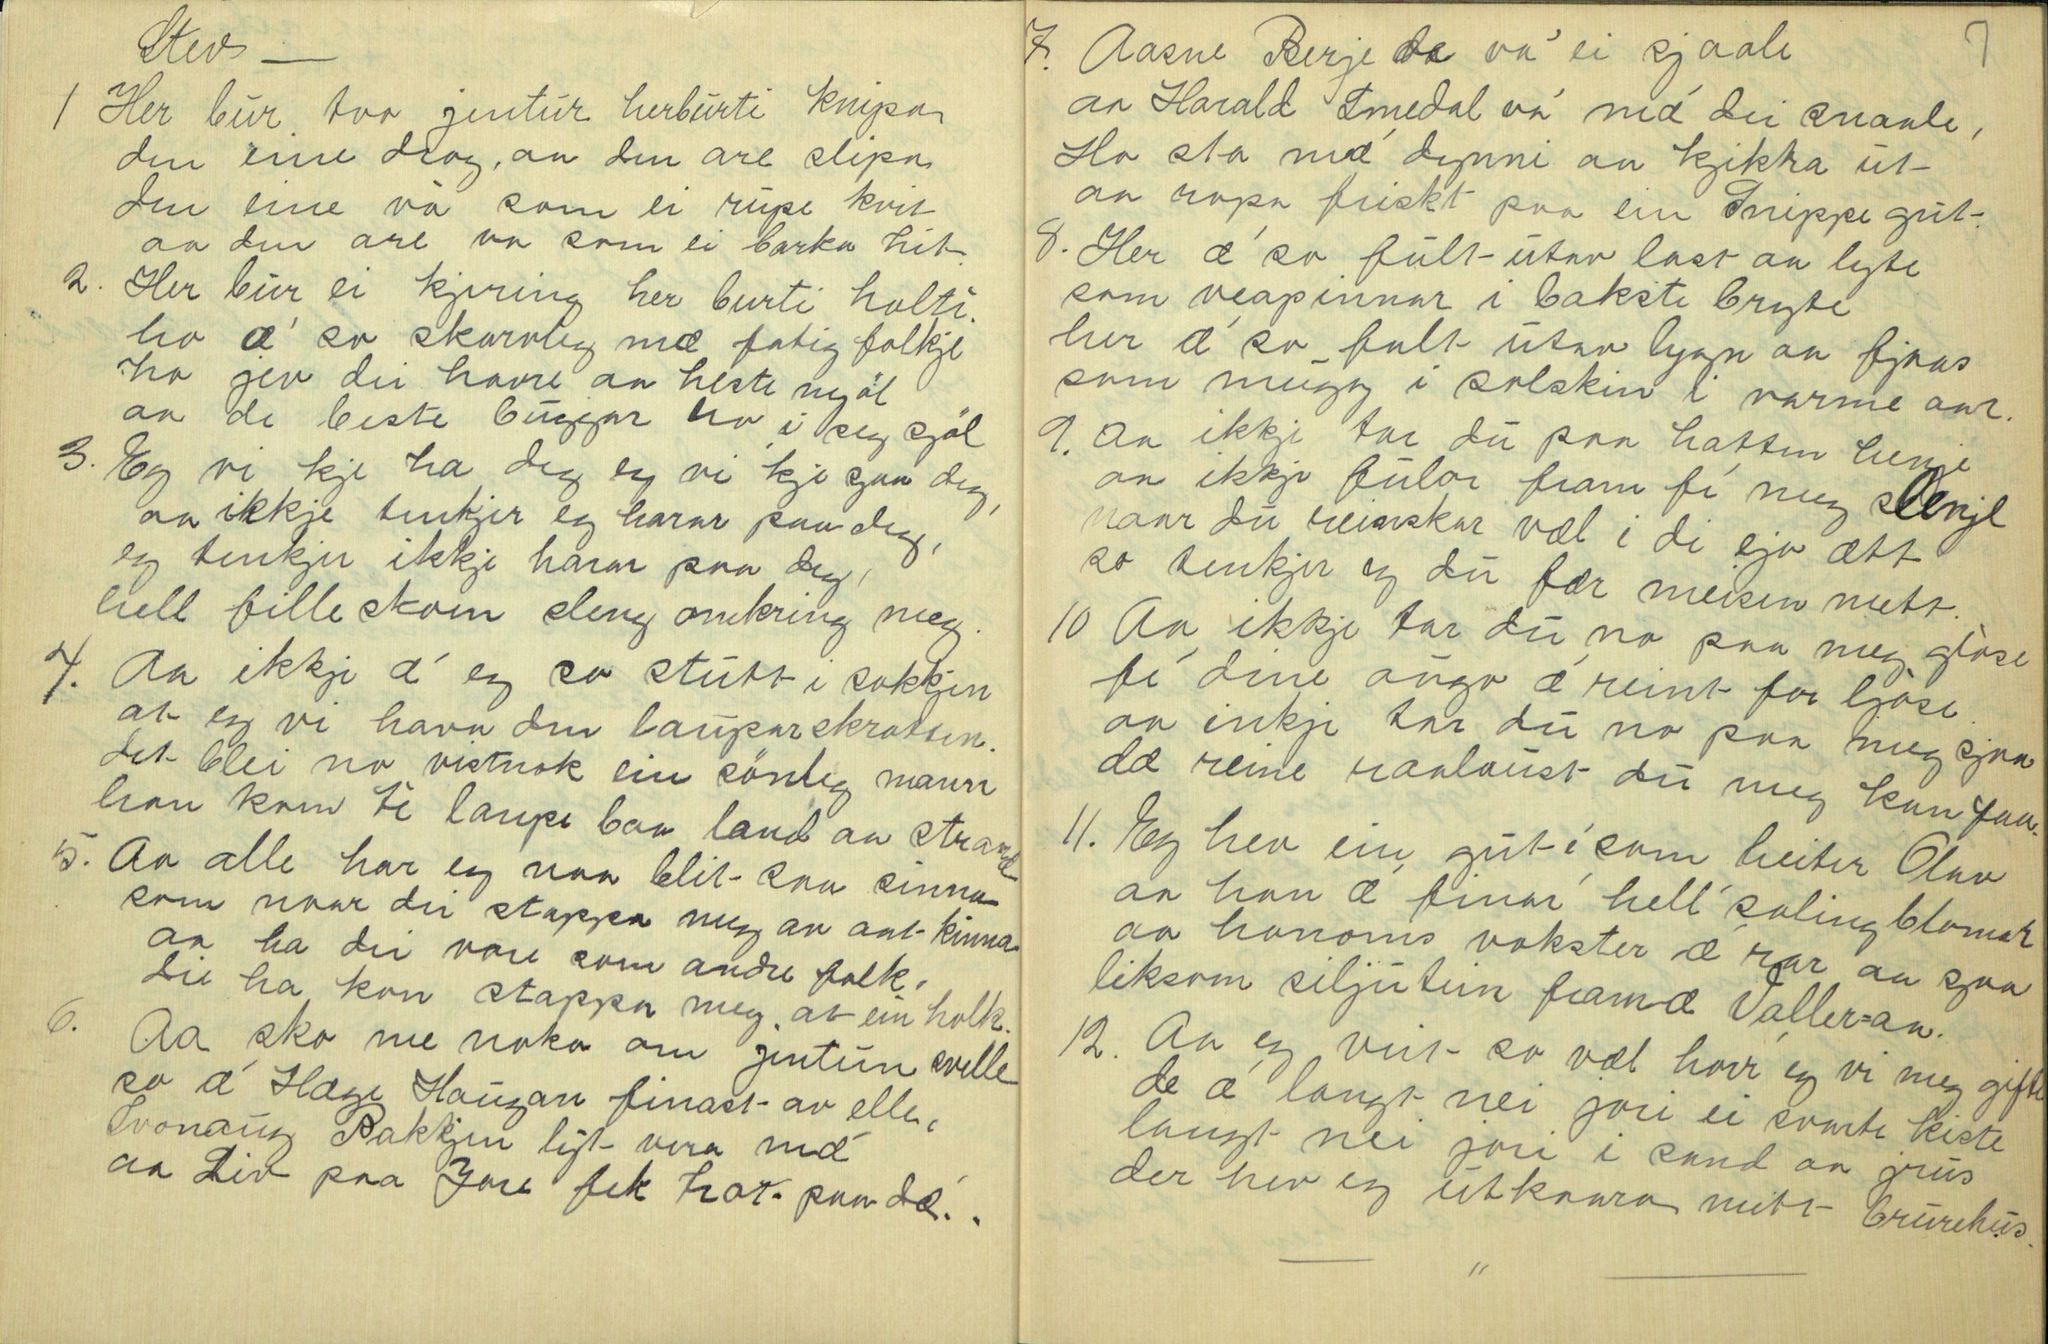 Stev —
1 Her bur too jentur herburti Knipa
den eine drog, aa den are slipa
den eine vå som ei rupe kvit
aa den are va som ei barka hit.
2. Her bur ei kjering her burti holti.
ho æ' so skarvleg mæ fatig folkje
ho jev dei havre aa heste mjøl
aa de beste byggjar ho i seg sjøl
3. Eg vi kje ha deg eg vi kje sjaa deg,
aa ikkje tenkjer eg harar paa deg,
eg tenkjer ikkje harar paa deg,
hell filleskoen sleng omkring meg.
4. Aa ikkje æ' eg so stutt i sokkjen
at eg vi hava den lauparskrotten.
det blei no vistnok ein sønleg mann
han kom te laupe baa land aa strand
5. Aa alle har eg naa blit saa sinna
som naar dei stappa meg av aat kinna
aa ha dei vore som andre folk,
Dei ha kon stappa meg, at ein holk.
6. Aa sko me noko om jentun svelle
so æ' Hæge Haugan finast av elle,
Svonaug Bakkjen lyt vera mæ'
aa Liv paa Jore fek hat paa dæ'..
7
7. Aasne Berje da va' ei sjaale
aa Harald Tmedal va' mæ' dei snaale,
Ho sto mæ' dynni aa kjikka ut
aa ropa friskt paa ein Snippegut.
8. Her æ' so fult utav last aa lyte
som veapinnar i bakste bryte
her æ' so fult utav lygn aa fjaas
som mugg i solskin i varme aar.
9. Aa ikkje tar du paa hatten henje
aa ikkje fular fram fi meg slenje
naar du reinskar væl i di eja ætt
so tenkjer eg du fær meisen mett.
10 Aa ikkje tar du no paa meg gløse
fi dine augo æ' reint for ljøse
aa inkje tar du no paa meg sjaa
dæ reine raalaust du meg kan faa.
11. Eg hev ein gut i' som heiter Olav
aa han æ' finar' hell' soling blomar
aa honoms vokster æ' rar aa sjaa
liksom siljutein framæ Valler=aa.
12. Aa eg veit so væl hoir eg vi meg gifte
de æ' langt nei jori ei svarte kiste
langt nei jori i sand aa grus
der hev eg utkaara mitt brurehus.
— " —